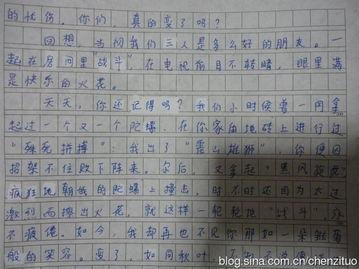 的忧伤。你们，真的变了吗？
回想，当初我们三人是多么好的朋友。一
起在房间里“战斗”，在电视前目不转睛，眼里满
是快乐的火花。
天天，你还记得吗？我们小时候曾一同拿
起过一个又一个陀螺，在你家的地砖上进行过
“殊死拼搏”：我出了“雷公雄狮”，你便因
招架不住败下阵来。尔后，又拿起“黑风
疯狂地朝我的陀螺上撞击，时不时还因为太过
激烈而擦出火花。就这样一轮轮地“战斗”，
不疲倦。如今，我却再也不见你那如一朵鲜
般的笑容。变了，如同秋叶
blog.sina.com.cn/chenzituo